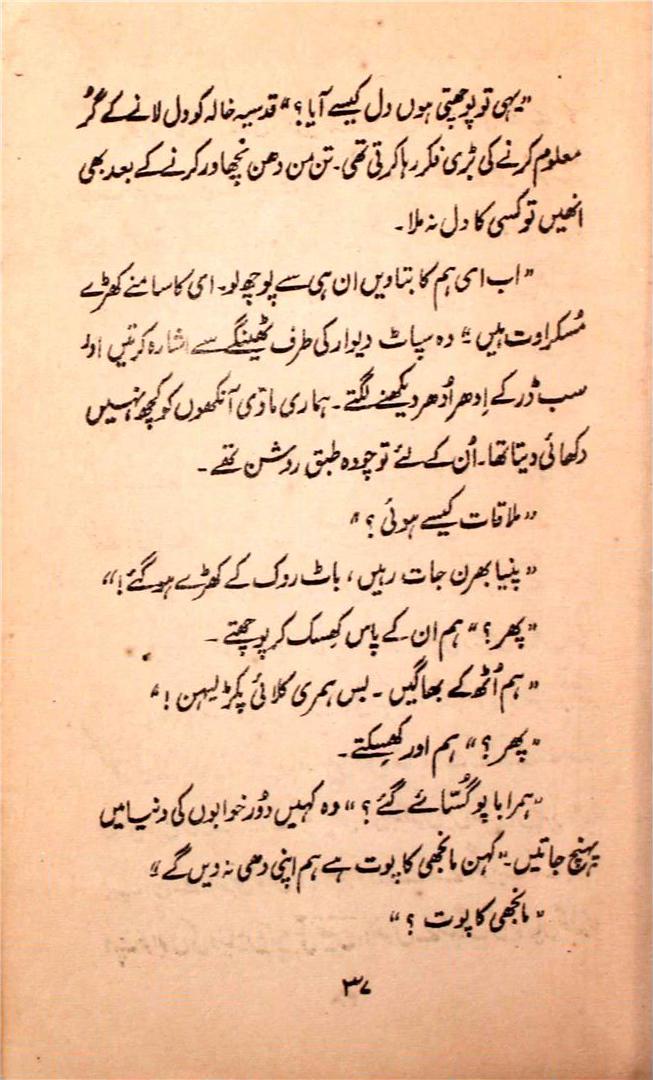 "یہی تو پوچھتی ہوں دل کیسے آیا؟" قدسیہ خالہ کو دل لانے کے گُر
معلوم کرنے کی بڑی فکر رہا کرتی تھی۔ تن من دھن نچھاور کرنے کے بعد بھی
انھیں تو کسی کا دل نہ ملا۔
"اب ای ہم کا بتاویں ان ہی سے پوچھ لو۔ ای کا سامنے کھڑے
مُسکراوت ہیں" وہ سپاٹ دیوار کی طرف ٹھینگے سے اشارہ کرتیں اور
سب ڈر کے اِدھر اُدھر دیکھنے لگتے۔ ہماری مادّی آنکھوں کو کچھ نہیں
دکھائی دیتا تھا۔ اُن کے لئے تو چودہ طبق روشن تھے۔
"ملاقات کیسے ہوئی؟"
"پنیا بھرن جات رہیں، باٹ روک کے کھڑے ہو گئے!"
"پھر؟" ہم ان کے پاس کھِسک کر پوچھتے۔
"ہم اُٹھ کے بھاگیں۔ بس ہمری کلائی پکڑ لیہن!"
"پھر؟" ہم اور کھِسکتے۔
"ہمرا باپو گُسّائے گئے؟" وہ کہیں دُور خوابوں کی دنیا میں
پہنچ جاتیں۔ "کہن مانجھی کا پوت ہے ہم اپنی دھی نہ دیں گے"
"مانجھی کا پوت؟"
۳۷